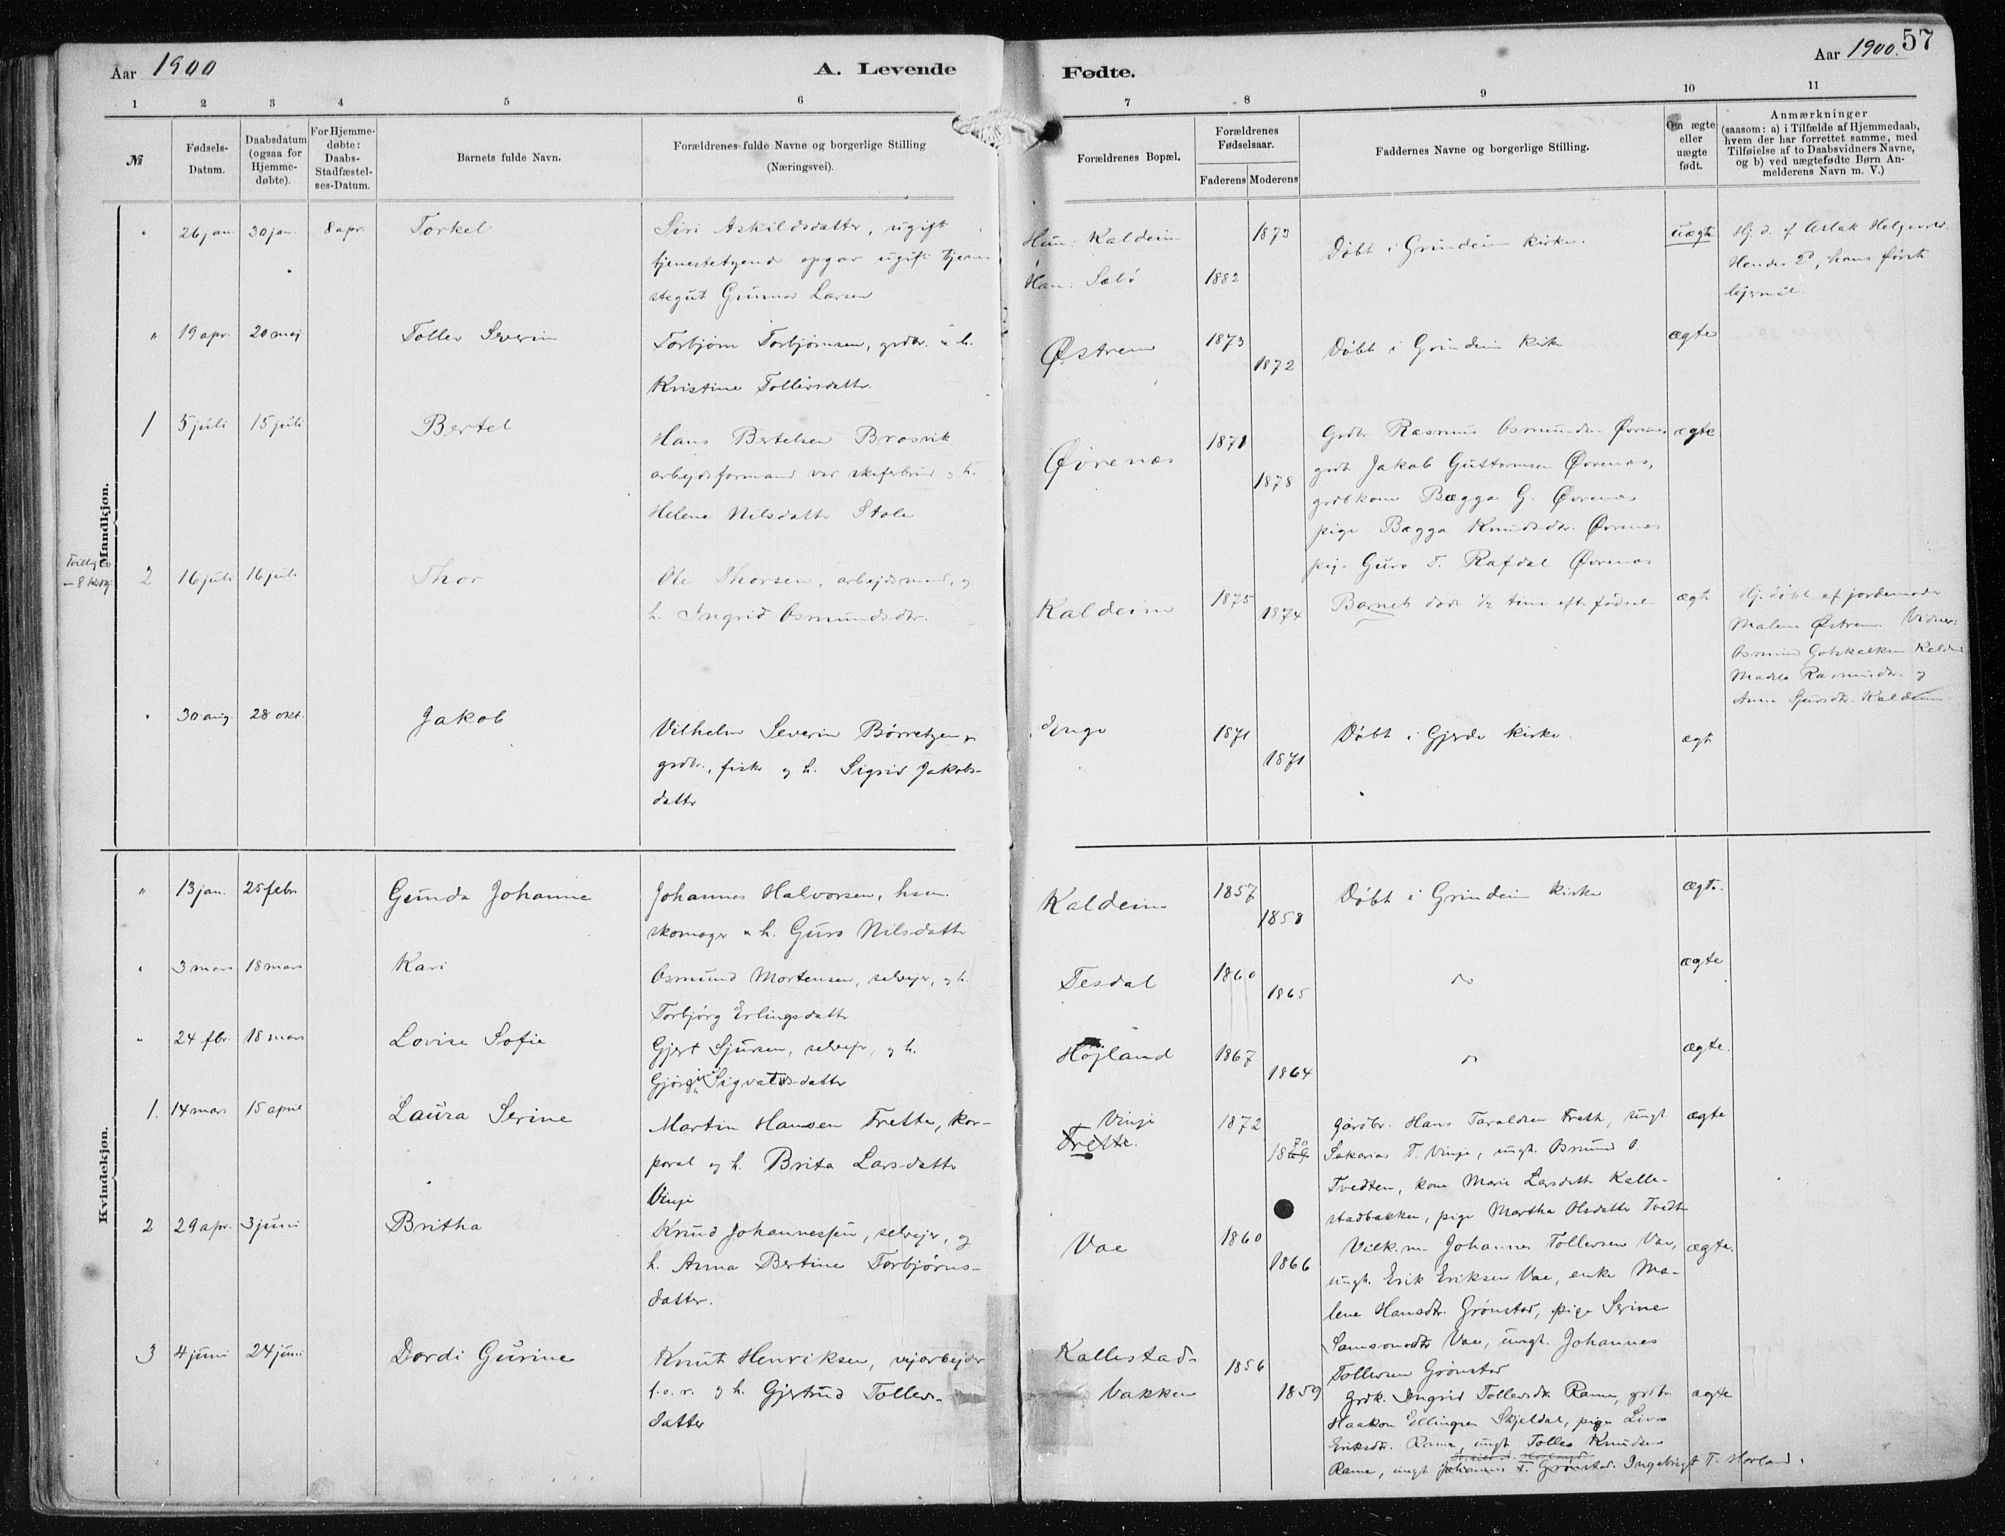 Aar 1900
A. Levende
Fødte.
Aar 1900.
57
1 2 3 4 5 6 7 8 9 10 11
№
Fødsels-
Datum.
Daabsdatum
(ogsaa for
Hjemme-
døbte).
For Hjemme-
døbte:
Daabs-
Stadfæstel-
ses-Datum.
Barnets fulde Navn.
Forældrenes fulde Navne og borgerlige Stilling
(Næringsvei).
Forældrenes Bopæl.
Forældrenes
Fødselsaar.
Faderens Moderens
Faddernes Navne og borgerlige Stilling.
Om ægte
eller
uægte
født.
Anmærkninger
(saasom: a) i Tilfælde af Hjemmedaab,
hvem der har forrettet samme, med
Tilføielse af to Daabsvidners Navne,
og b) ved uægtefødte Børn An-
melderens Navn m. V.)
Mandkjøn.
" 26 jan 30 jan. 8 apr. Torkel
Siri Askildsdatter, ugift
tjenestetyende opgav ugift tjene-
stegut Gunnar Larsen
Hun: Kaldeim 1873
Han: Sæbø 1882
Døbt i Grindeim kirke.
uægte
Hj. d. af Aslak Helgesen.
Hendes 2det, hans første
lejermål.
" 19 apr. 20 maj Tollev Severin
Torbjørn Torbjørnsen, grdbr. & h.
Kristine Tollevsdatter.
Østrem 1873 1872
Døbt i Grindeim kirke
ægte
1 5 juli 15 juli Bertel
Hans Bertelsen Brosvik
arbejdsformand ved skiferbrud og h.
Helene Nilsdatter Stole
Øvrenæs 1871 1878
Grdbr Rasmus Osmundsen Øvrenæs
grdb. Jakob Guttormsen Øvrenæs,
grdbkone Bægga G. Øvrenæs
pige Bægga Knudsdtr. Øvrenæs
pige Guro T. Rafdal Øvrenæs
ægte
2 16 juli 16 juli Thor
Ole Thorsen, arbejdsmand, og
h. Ingrid Osmundsdtr.
Kaldeim 1875 1874
Barnet døde ½ time eft. fødsel
ægte
Hj. døbt af jordemoder
Malene Østrem. Vidner:
Osmund Gotskalksen Kaldeim
Rasmusdtr. og
Anna Sjursdtr. Kaldeim.
" 30 aug. 28 okt. Jakob
Vilhelm Severin Børretzen,
grdbr., fisker og h. Sigrid Jakobs-
datter
Enge 1871 1871
Døbt i Gjerde kirke.
ægte
Kvindekjøn.
" 13 jan. 25 febr Gunda Johanne
Johannes Halvorsen, hsm.
skomager & h. Guro Nilsdatter
Kaldeim 1857 1858
Døbt i Grindeim kirke
ægte.
" 3 mars 18 mars Kari
Osmund Mortensen, selvejer, og h.
Torbjørg Erlingsdatter
Tesdal 1860 1865
do
ægte
" 24 fbr. 18 mars Lovise Sofie
Gjert Sjursen, selvejer, og h.
Sigvaldsdatter
Højland 1867 1864
do
ægte.
1. 14 mars 15 april Laura Serine
Martin Hansen Trette, kor-
poral og h. Brita Larsdatter
Vinje
Vinje
Trette.
1872 1870
Gårdbr. Hans Taraldsen Trette, ungk.
Sakarias T. Vinje, ungk. Osmund O
Tvedten, kone Marie Larsdatter Kalle-
stadbakken, pige Martha Olsdatter Tvedt
ægte
2 29 apr. 3 juni Britha
Knud Johannessen, selvejer, og
h. Anna Bertine Torbjørns-
datter.
Vae 1860 1866
Johannes Tollevsen Vae,
ungk. Erik Eriksen Vae, enke Ma-
lene Hansdtr. Grønstad, pige Serine
Samsonsdtr Vae, ungk. Johannes
Tollevsen Grønstad
ægte.
3 4 juni 24 juni Dordi Gurine
Knut Henriksen, vejarbejder
og h. Gjertrud Tollevs-
datter
Kallestad-
bakken 1856 1859
Grdk. Ingrid Tollevsdtr. Rame, grdbr
Haakon Ellingsen Skjeldal, pige Liva
Eriksdtr. Rame, ungk Tollev Knudsen
Rame, ungk Johannes T. Grønstad. Ingebrigt T. Horland.
ægte